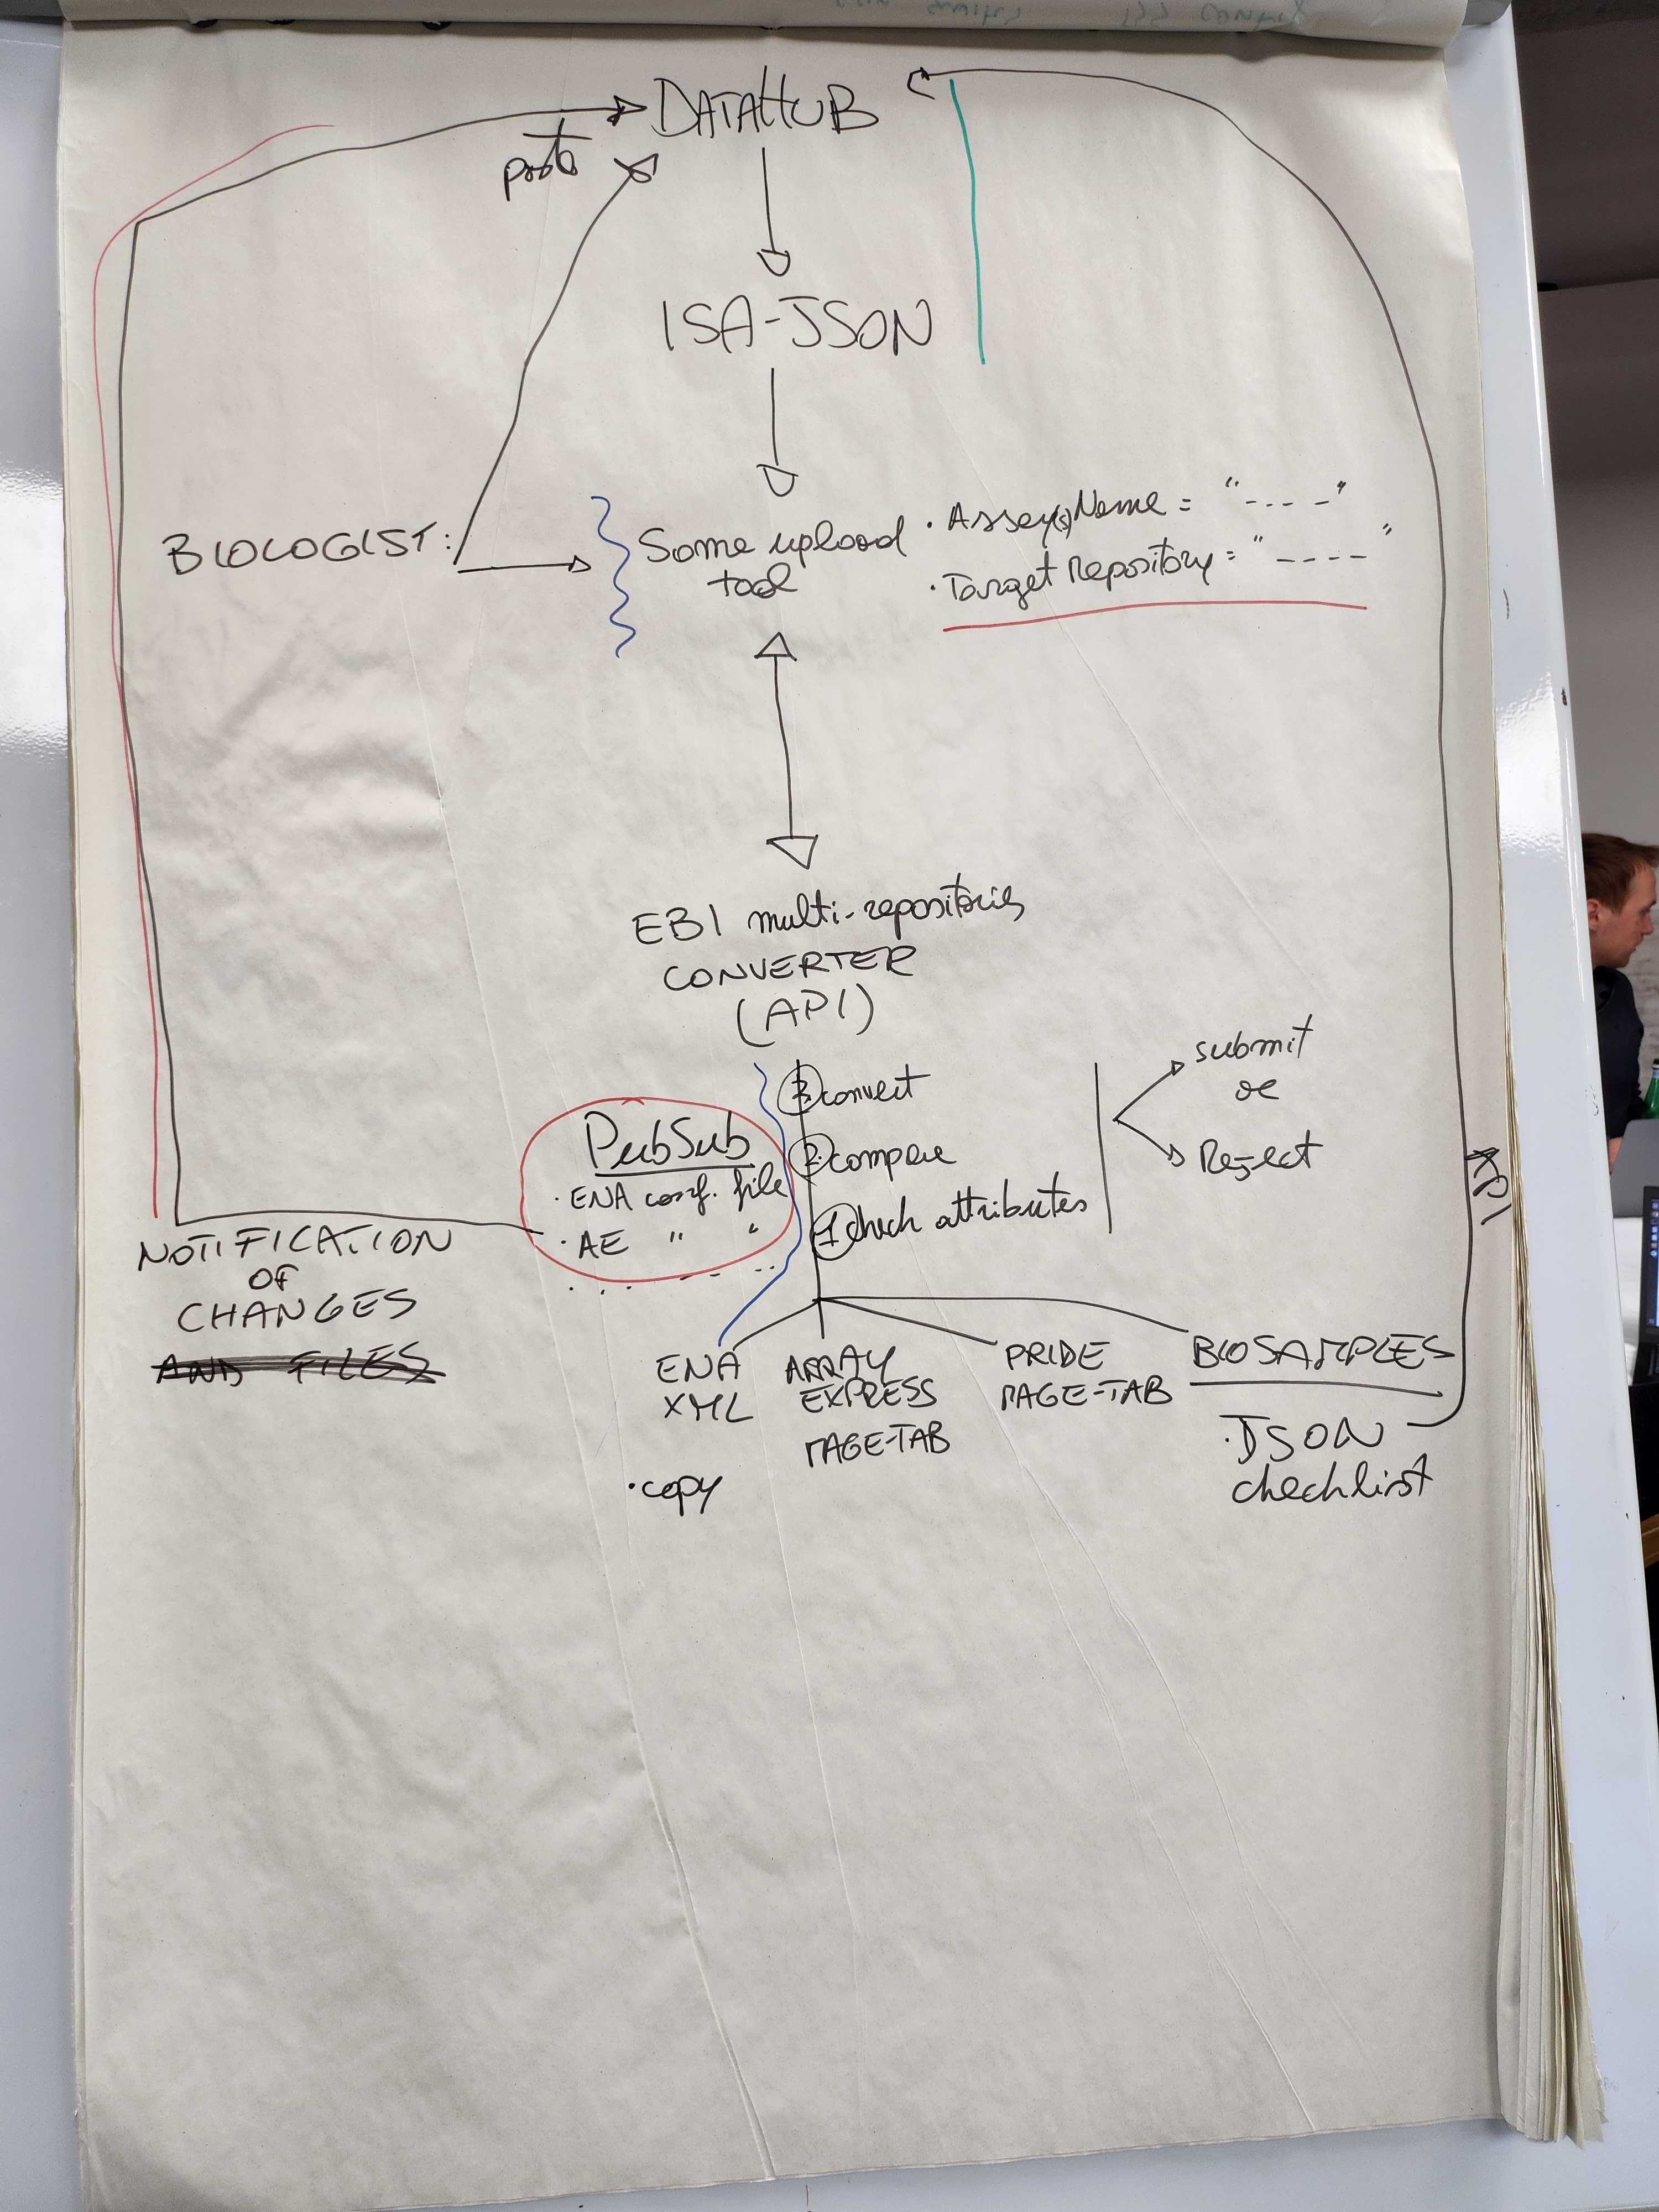 DATAHUB
ISA-JSON
BIOLOGIST:
Some upload
tool
· Assay(s) Name = "----"
· Target Repository = "----"
EBI multi-repositories
CONVERTER
(API)
3. convert
2. compare
1 Check attributes
submit
or
Reject
API
PubSub
· ENA conf. file
· AE " "
NOTIFICATION
OF
CHANGES
AND FILES
ENA
XML
· copy
ARRAY
EXPRESS
MAGE-TAB
PRIDE
MAGE-TAB
BIOSAMPLES
· JSON
checklist